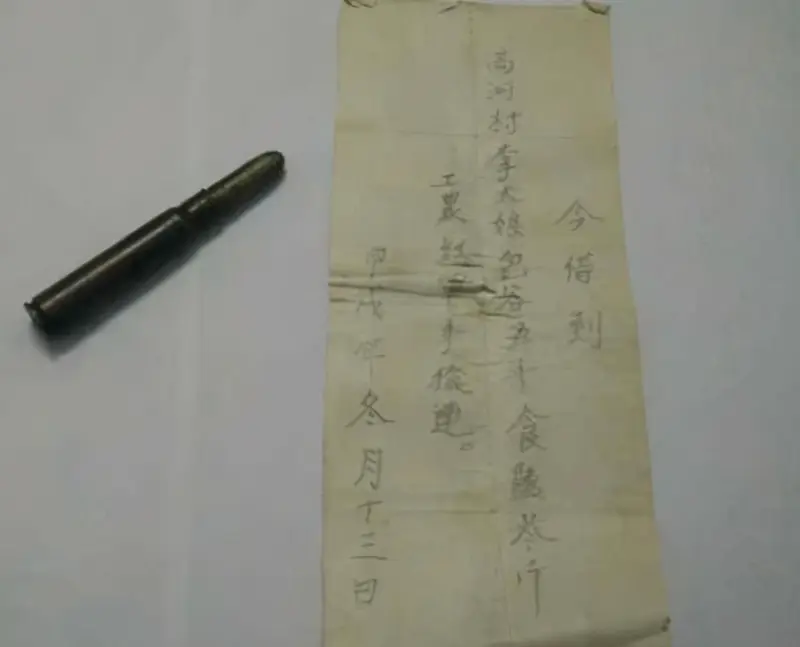 今借到
高河村李大娘包谷五十食盐叁斤
工農紅軍手槍連。
甲戌年冬月十三日